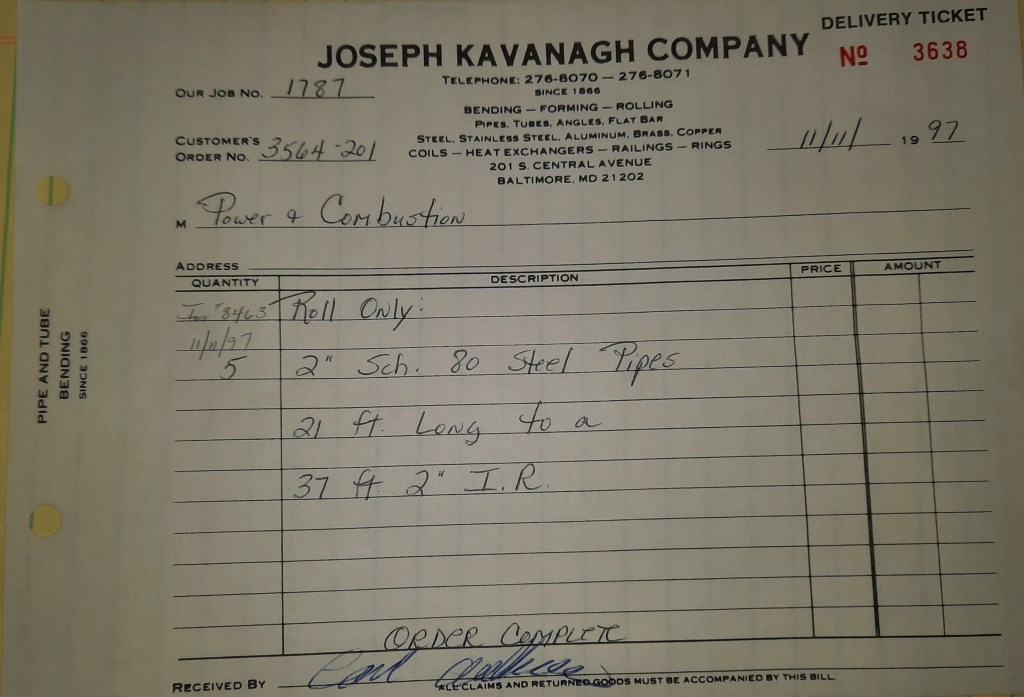 DELIVERY TICKET
JOSEPH KAVANAGH COMPANY
Nº 3638
TELEPHONE: 276-8070 — 276-8071
SINCE 1866
OUR JOB NO. 1787
BENDING — FORMING — ROLLING
PIPES, TUBES, ANGLES, FLAT BAR
STEEL, STAINLESS STEEL, ALUMINUM, BRASS, COPPER
CUSTOMER'S
ORDER NO. 3564-201
COILS — HEAT EXCHANGERS — RAILINGS — RINGS
11/11/ 19 97
201 S. CENTRAL AVENUE
BALTIMORE, MD 21202
M Power & Combustion
ADDRESS
QUANTITY DESCRIPTION PRICE AMOUNT
Inv # 8463 Roll Only:
11/11/97
5 2" Sch. 80 Steel Pipes
21 ft. Long to a
37 ft 2" I.R.
ORDER COMPLETE
RECEIVED BY
ALL CLAIMS AND RETURNED GOODS MUST BE ACCOMPANIED BY THIS BILL
PIPE AND TUBE
BENDING
SINCE 1866